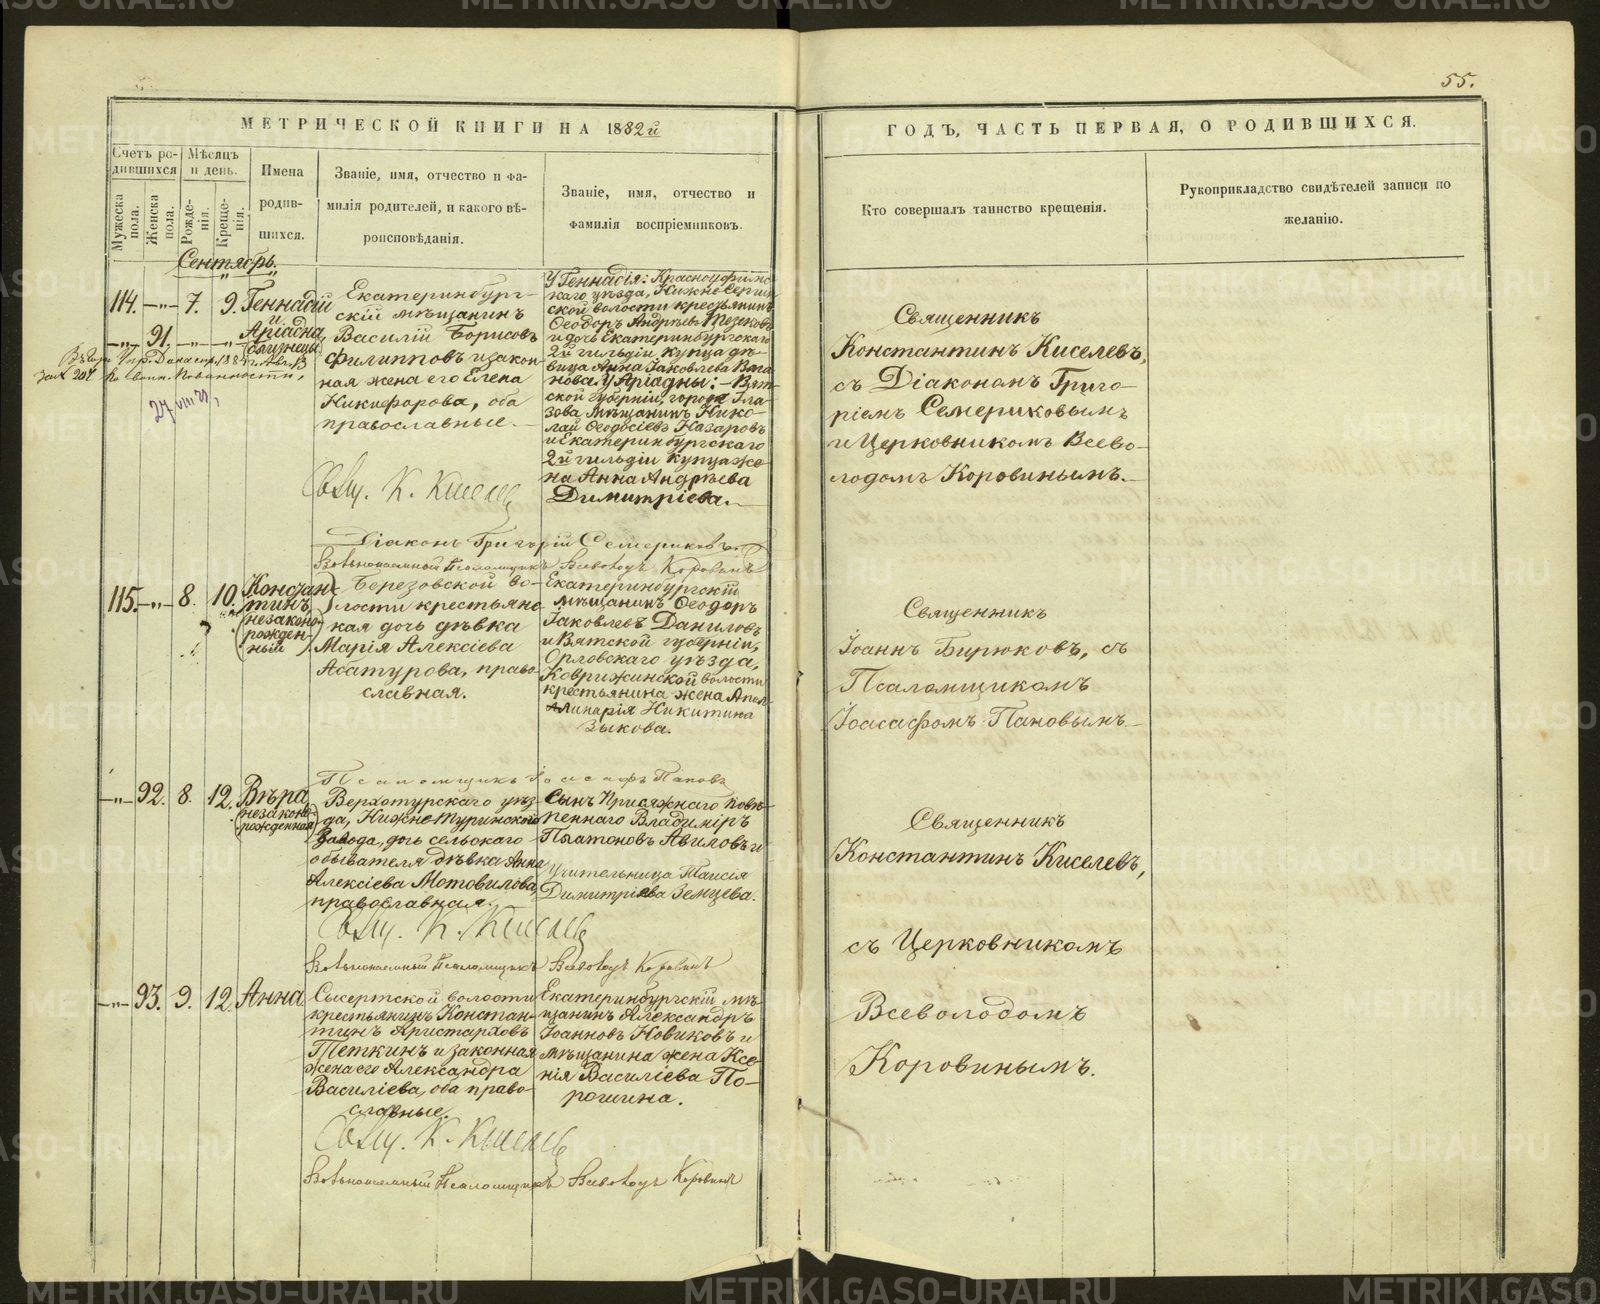 55.
МЕТРИЧЕСКОЙ КНИГИ НА 1882й
ГОДЪ, ЧАСТЬ ПЕРВАЯ, О РОДИВШИХСЯ.
Счетъ ро-
дившихся
Мужеска пола.
Женска пола.
Мѣсяцъ
и день.
Рожде-
нія.
Креще-
нія.
Имена
родив-
шихся.
Званіе, имя, отчество и фа-
милія родителей, и какого вѣ-
роисповѣданія.
Званіе, имя, отчество и
фамилія воспріемниковъ.
Кто совершалъ таинство крещенія.
Рукоприкладство свидѣтелей записи по
желанію.
Сентябрь.
114. —"— 7. 9.
—"— 91. —"— —"—
Геннадій
и
Аріадна,
(близнецы)
27
Екатеринбург-
скій мѣщанинъ
Василій Борисовъ
Филипповъ и закон-
ная жена его Елена
Никифорова, оба
православные.
У Геннадія: Красноуфимс-
каго уѣзда, Нижне-Сергин-
ской волости крестьянинъ
Ѳеодоръ Андреевъ
и дочь Екатеринбургскаго
2й гильдіи купца дѣ-
вица Анна Іаковлева Вага-
нова. У Аріадны: — Вят-
ской губерніи, города Гла-
зова мѣщанинъ Нико-
лай Ѳеодосіевъ Назаровъ
и Екатеринбургскаго
2й гильдіи купца же-
на Анна Андреева
Димитріева.
Свящ. К. Киселевъ
Діаконъ Григорій Семериковъ
Вольнонаемный Псаломщикъ Всеволодъ Коровинъ
Священникъ
Константинъ Киселевъ,
съ Діакономъ Григо-
ріемъ Семериковымъ
и Церковникомъ Всево-
лодомъ Коровинымъ.
115. —"— 8. 10.
Констан-
тинъ
(незаконо-
рожден-
ный)
Березовской во-
лости крестьянс-
кая дочь дѣвка
Марія Алексіева
Асатурова, право-
славная.
Екатеринбургскій
мѣщанинъ Ѳеодоръ
Іаковлевъ Даниловъ
и Вятской губерніи,
Орловскаго уѣзда,
Коврижинской волости
крестьянина жена Апол-
линарія Никитина
Зыкова.
Псаломщикъ Іоасафъ Пановъ
Священникъ
Іоаннъ Бирюковъ, съ
Псаломщикомъ
Іоасафомъ Пановымъ
—"— 92. 8. 12.
Вѣра
(незаконо-
рожденная)
Верхотурскаго уѣз-
да, Нижне-Туринскаго
завода, дочь сельскаго
обывателя дѣвка Анна
Алексіева Мотовилова,
православная.
Сынъ Присяжнаго Повѣ-
реннаго Владиміръ
Платоновъ Авиловъ и
учительница Таисія
Димитріева Земцева.
Свящ. К. Киселевъ
Вольнонаемный Псаломщикъ Всеволодъ Коровинъ
Священникъ
Константинъ Киселевъ,
съ Церковникомъ
Всеволодомъ
Коровинымъ.
—"— 93. 9. 12.
Анна
Сысертской волости
крестьянинъ Констан-
тинъ Аристарховъ
Теткинъ и законная
жена его Александра
Василіева, оба право-
славные.
Екатеринбургскій мѣ-
щанинъ Александръ
Іоанновъ Новиковъ и
мѣщанина жена Ксе-
нія Василіева По-
рошина.
Свящ. К. Киселевъ
Вольнонаемный Псаломщикъ Всеволодъ Коровинъ
METRIKI.GASO-URAL.RU